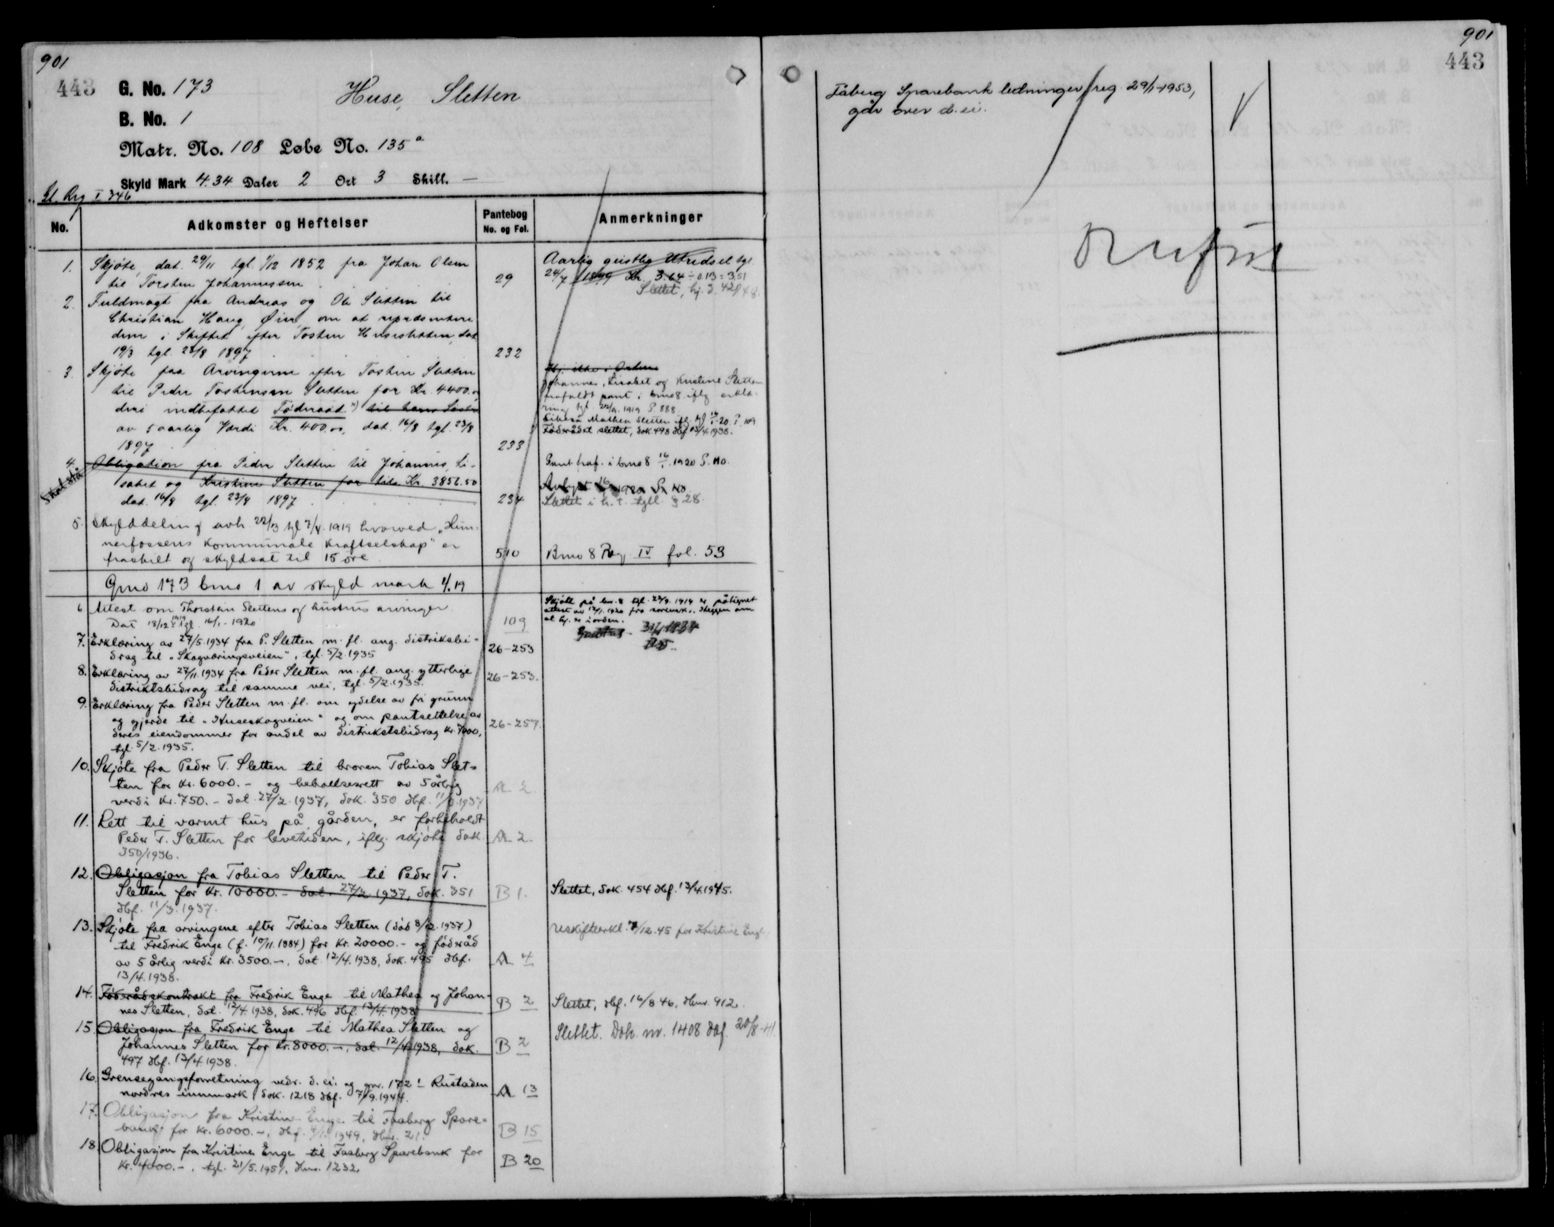 901
443
G. No. 173
Huse, Sletten
B. No. 1
Matr. No. 108 Løbe No. 135 a
Skyld Mark 4.34 Daler 2 Ort 3 Skill. —
Gl. Reg I 346
No.
Adkomster og Heftelser
Pantebog
No. og Fol.
Anmerkninger
1. Skjøte, dat. 29/11 tgl. 1/12 1852 fra Johan Olsen
til Torsten Johannessen
29
Aarlig geistlig Utredsel tgl
24/7 1899 Kr. 3.64 ÷ 0.13 = 3.51
Slettet,
2. Fuldmagt fra Andreas og Ole Sletten til
Christian Haug, Øier om at repræsentere
dem i Skiftet efter Tosten Huseslettten, dat
19/3 tgl. 23/8 1897
232
3. Skjøte fra Arvingerne efter Tosten Sletten
til Peder Tostensen Sletten for Kr. 4400.00
deri indbefattet Føderaad
av 5 aarlig Værdi Kr. 400.00, dat. 16/8 tgl. 23/8
1897
233
Johannes, Lisabet og Kristine Sletten
frafaldt pant i bno 8 iflg. erklæ-
ring tgl. 1919 P. 888
Føderådet slettet, dok 498 dbf 13/4 1938.
4. Obligation fra Peder Sletten til Johannes, Li-
sabet og Kristine Sletten for tils. Kr. 3856.50
dat. 16/8 tgl. 23/8 1897
234
Pant fraf. i bno 8 16/1 1920 P. 110
Slettet i h. t. tgll. § 28
5. Skylddeling avh 22/3 tgl 7/4 1919 hvorved "Hun-
nerfossens Kommunale Kraftselskap" er
fraskilt og skyldsat til 15 øre
510
Bno 8 Reg IV fol. 53
Gno 173 bno 1 av skyld mark 4.19
6. Attest om Thorstein Slettens og hustrus arvinger
Dat 13/12 1919 tgl. 16/1 1920
109
Skjøte på bnr. 8 tgl.
at hj. er i orden.
7. Erklæring av 27/5 1934 fra P. Sletten m. fl. ang. distriktsbi-
drag til "Skogværingsveien", tgl. 5/2 1935
26-253
8. Erklæring av 27/11 1934 fra Peder Sletten m. fl. ang. ytterlige
distriktsbidrag til samme vei, tgl. 5/2 1935.
26-253.
9. Erklæring fra Peder Sletten m. fl. om ydelse av fri grunn
og gjerde til "Huseskogveien" og om pantsettelse av
deres eiendommer for andel av distriktsbidrag kr. 7000,
tgl 5/2 1935.
26-257
10. Skjøte fra Peder T. Sletten til broren Tobias Slet-
ten for kr. 6000.- og beholtsesrett av 5 årlig
verdi kr. 750.- dat. 27/2 1937, dok. 350 dbf. 11/3 1937
A 2
11. Rett til varmt hus på gården, er forbeholdt
Peder T. Sletten for levetiden, iflg. skjøte dok
350/1936.
A 2
12. Obligasjon fra Tobias Sletten til Peder T.
Sletten for kr. 10000.- dat. 27/2 1937, dok. 351
dbf. 11/3 1937.
B 1.
Slettet, dok. 454 dbf. 13/4 1945.
13. Skjøte fra arvingene efter Tobias Sletten (død 8/12 1937)
til Fredrik Enge (f. 10/11 1884) for kr. 20000.- og føderåd
av 5 årlig verdi kr. 3500.-, dat 12/4. 1938, dok. 495 dbf.
13/4 1938.
A 4
Uskifteerkl. 7/12.45 for Kristine Enge
14. Føderådskontrakt fra Fredrik Enge til Mathea og Johan-
nes Sletten, dat. 12/4 1938, dok. 496 dbf. 13/4 1938
B 2
Slettet, dbf. 16/8 46, dnr. 912.
15. Obligasjon fra Fredrik Enge til Mathea Sletten og
Johannes Sletten for kr. 8000.-, dat. 12/4 1938, dok.
497 dbf. 13/4 1938.
B 2
Slettet. Dok. nr. 1408 dbf 20/8-41.
16. Grensegangsforretning vedr. d. ei. og gnr. 172 1 Rustaden
nordres innmark, dok. 1218 dbf. 7/9. 1944.
A 13
17. Obligasjon fra Kristine Enge til Faaberg Spare-
bank for kr. 6000.-, dbf. 1949, dnr. 21.
B 15
18. Obligasjon fra Kristine Enge til Faaberg Sparebank for
kr. 4000.-, tgl. 21/5. 1951, dnr. 1232.
B 20
901
443
Fåberg Sparebank ledninger, reg. 29/1-1953,
går over d. ei.
V